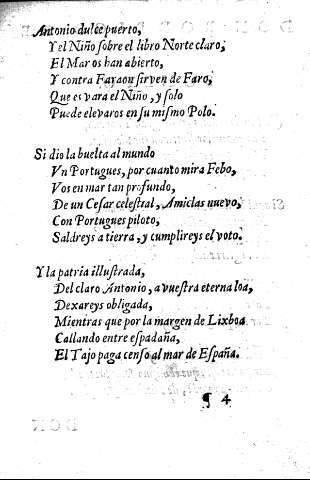 Antonio dulce puerto,
Y el Niño sobre el libro Norte claro,
El Mar os han abierto,
Y contra Faraon sirven de Faro,
Que es vara el Niño, y solo
Puede elevaros en su mismo Polo.
Si dio la buelta al mundo
Vn Portugues, por cuanto mira Febo,
Vos en mar tan profundo,
De un Cesar celestial, Amiclas nuevo,
Con Portugues piloto,
Saldreys a tierra, y cumplireys el voto.
Y la patria illustrada,
Del claro Antonio, a vuestra eterna loa,
Dexareys obligada,
Mientras que por la margen de Lixboa
Callando entre espadaña,
El Tajo paga censo al mar de España.
¶ 4